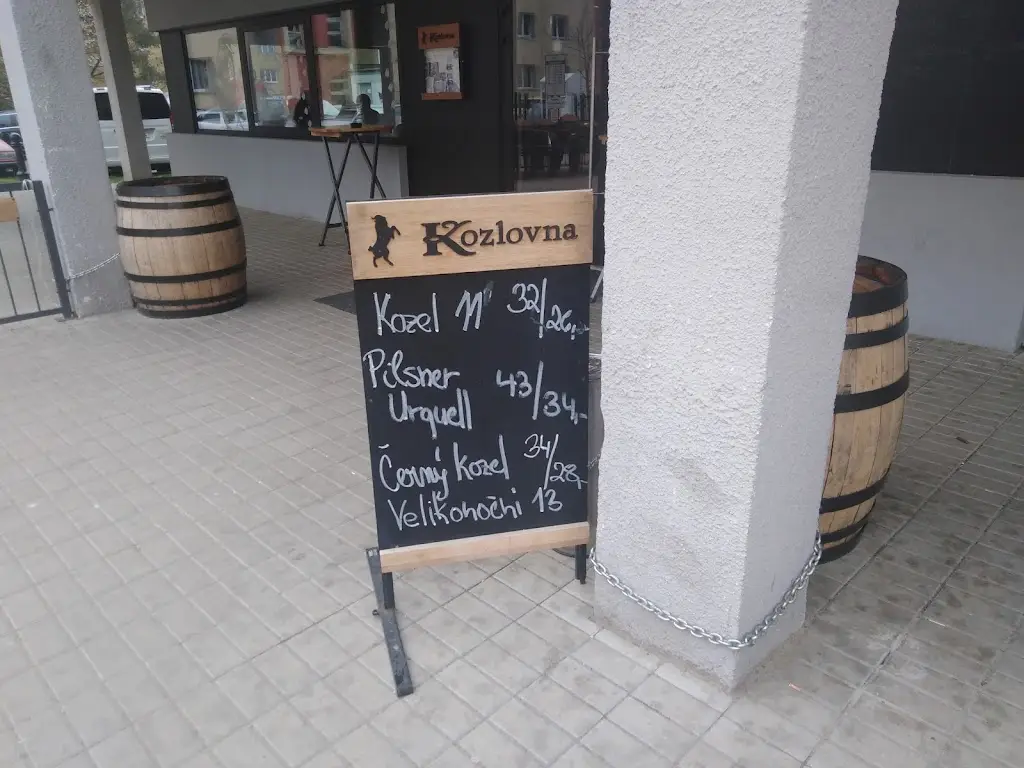 Kozlovna
Kozlovna
Kozel 11° 32/26,-
Pilsner
Urquell 43/34,-
Černý Kozel 34/28,-
Velikonoční 13